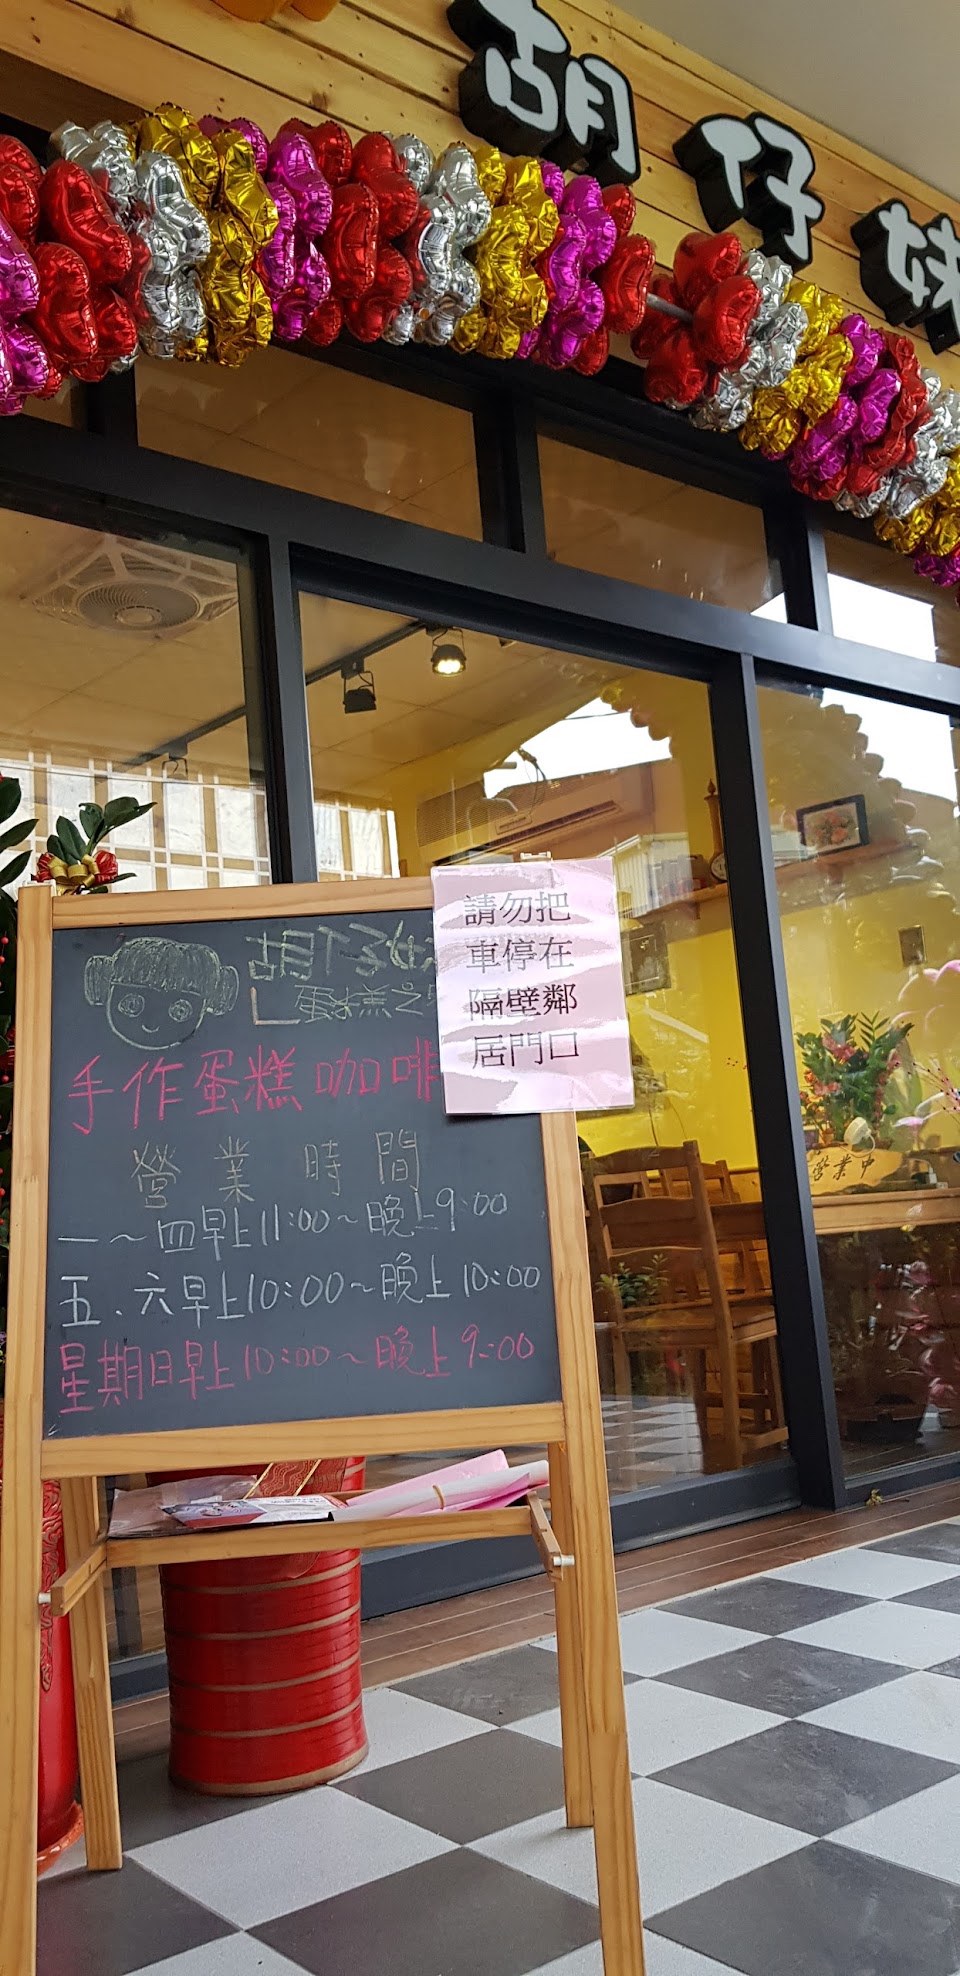 胡仔妹
胡仔妹
蛋糕之
手作蛋糕咖啡
營業時間
一～四早上11:00～晚上9:00
五、六早上10:00～晚上10:00
星期日早上10:00～晚上9:00
請勿把
車停在
隔壁鄰
居門口
營業中